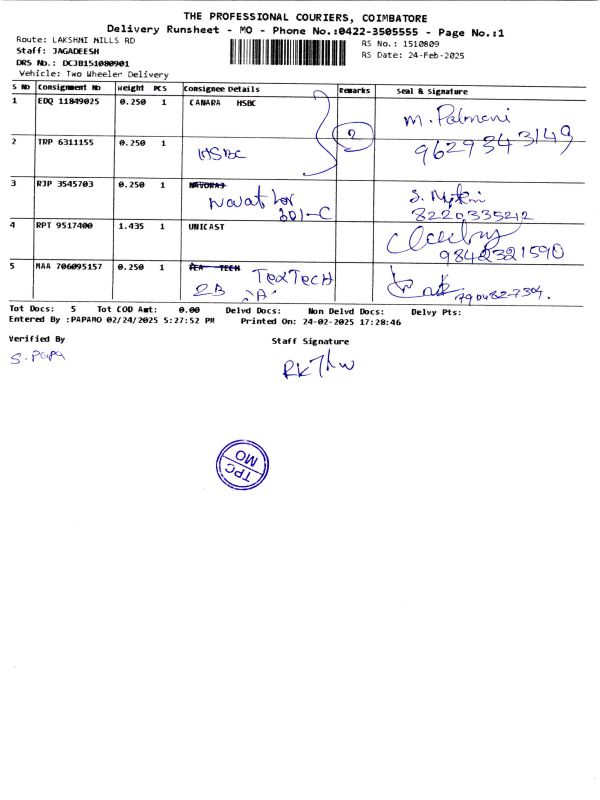 THE PROFESSIONAL COURIERS, COIMBATORE
Delivery Runsheet - MO - Phone No.:0422-3505555 - Page No.:1
Route: LAKSHMI MILLS RD
RS No.: 1510809
Staff: JAGADEESH
RS Date: 24-Feb-2025
DRS No.: DCJB151080901
Vehicle: Two Wheeler Delivery
S No Consignment No Weight PCS Consignee Details Remarks Seal & Signature
1 EDQ 11849025 0.250 1 CANARA HSBC
2 M. Palmani
2 TRP 6311155 0.250 1 HSBC 9629343149
3 RJP 3545703 0.250 1 NAVORAJ
301-C 8220335212
4 RPT 9517400 1.435 1 UNICAST
9842321590
5 MAA 706095157 0.250 1 TEA TECH TexTech
2B 'A'
Tot Docs: 5 Tot COD Amt: 0.00 Delvd Docs: Non Delvd Docs: Delvy Pts:
Entered By :PAPAMO 02/24/2025 5:27:52 PM Printed On: 24-02-2025 17:28:46
Verified By Staff Signature
S. Papa
TPC
MO